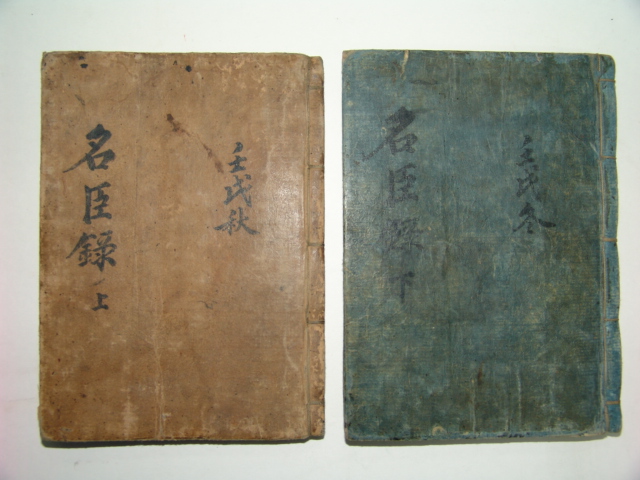 名臣錄 上
壬戌秋
名臣錄 下
壬戌冬